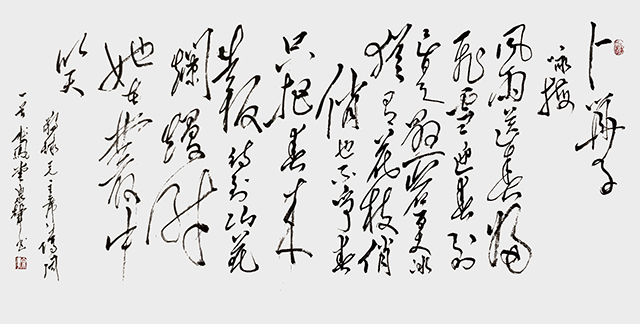 卜算子
咏梅
风雨送春归
飞雪迎春到
已是悬崖百丈冰
犹有花枝俏
俏也不争春
只把春来
报待到山花
烂漫时
她在丛中
笑
毛主席
一首